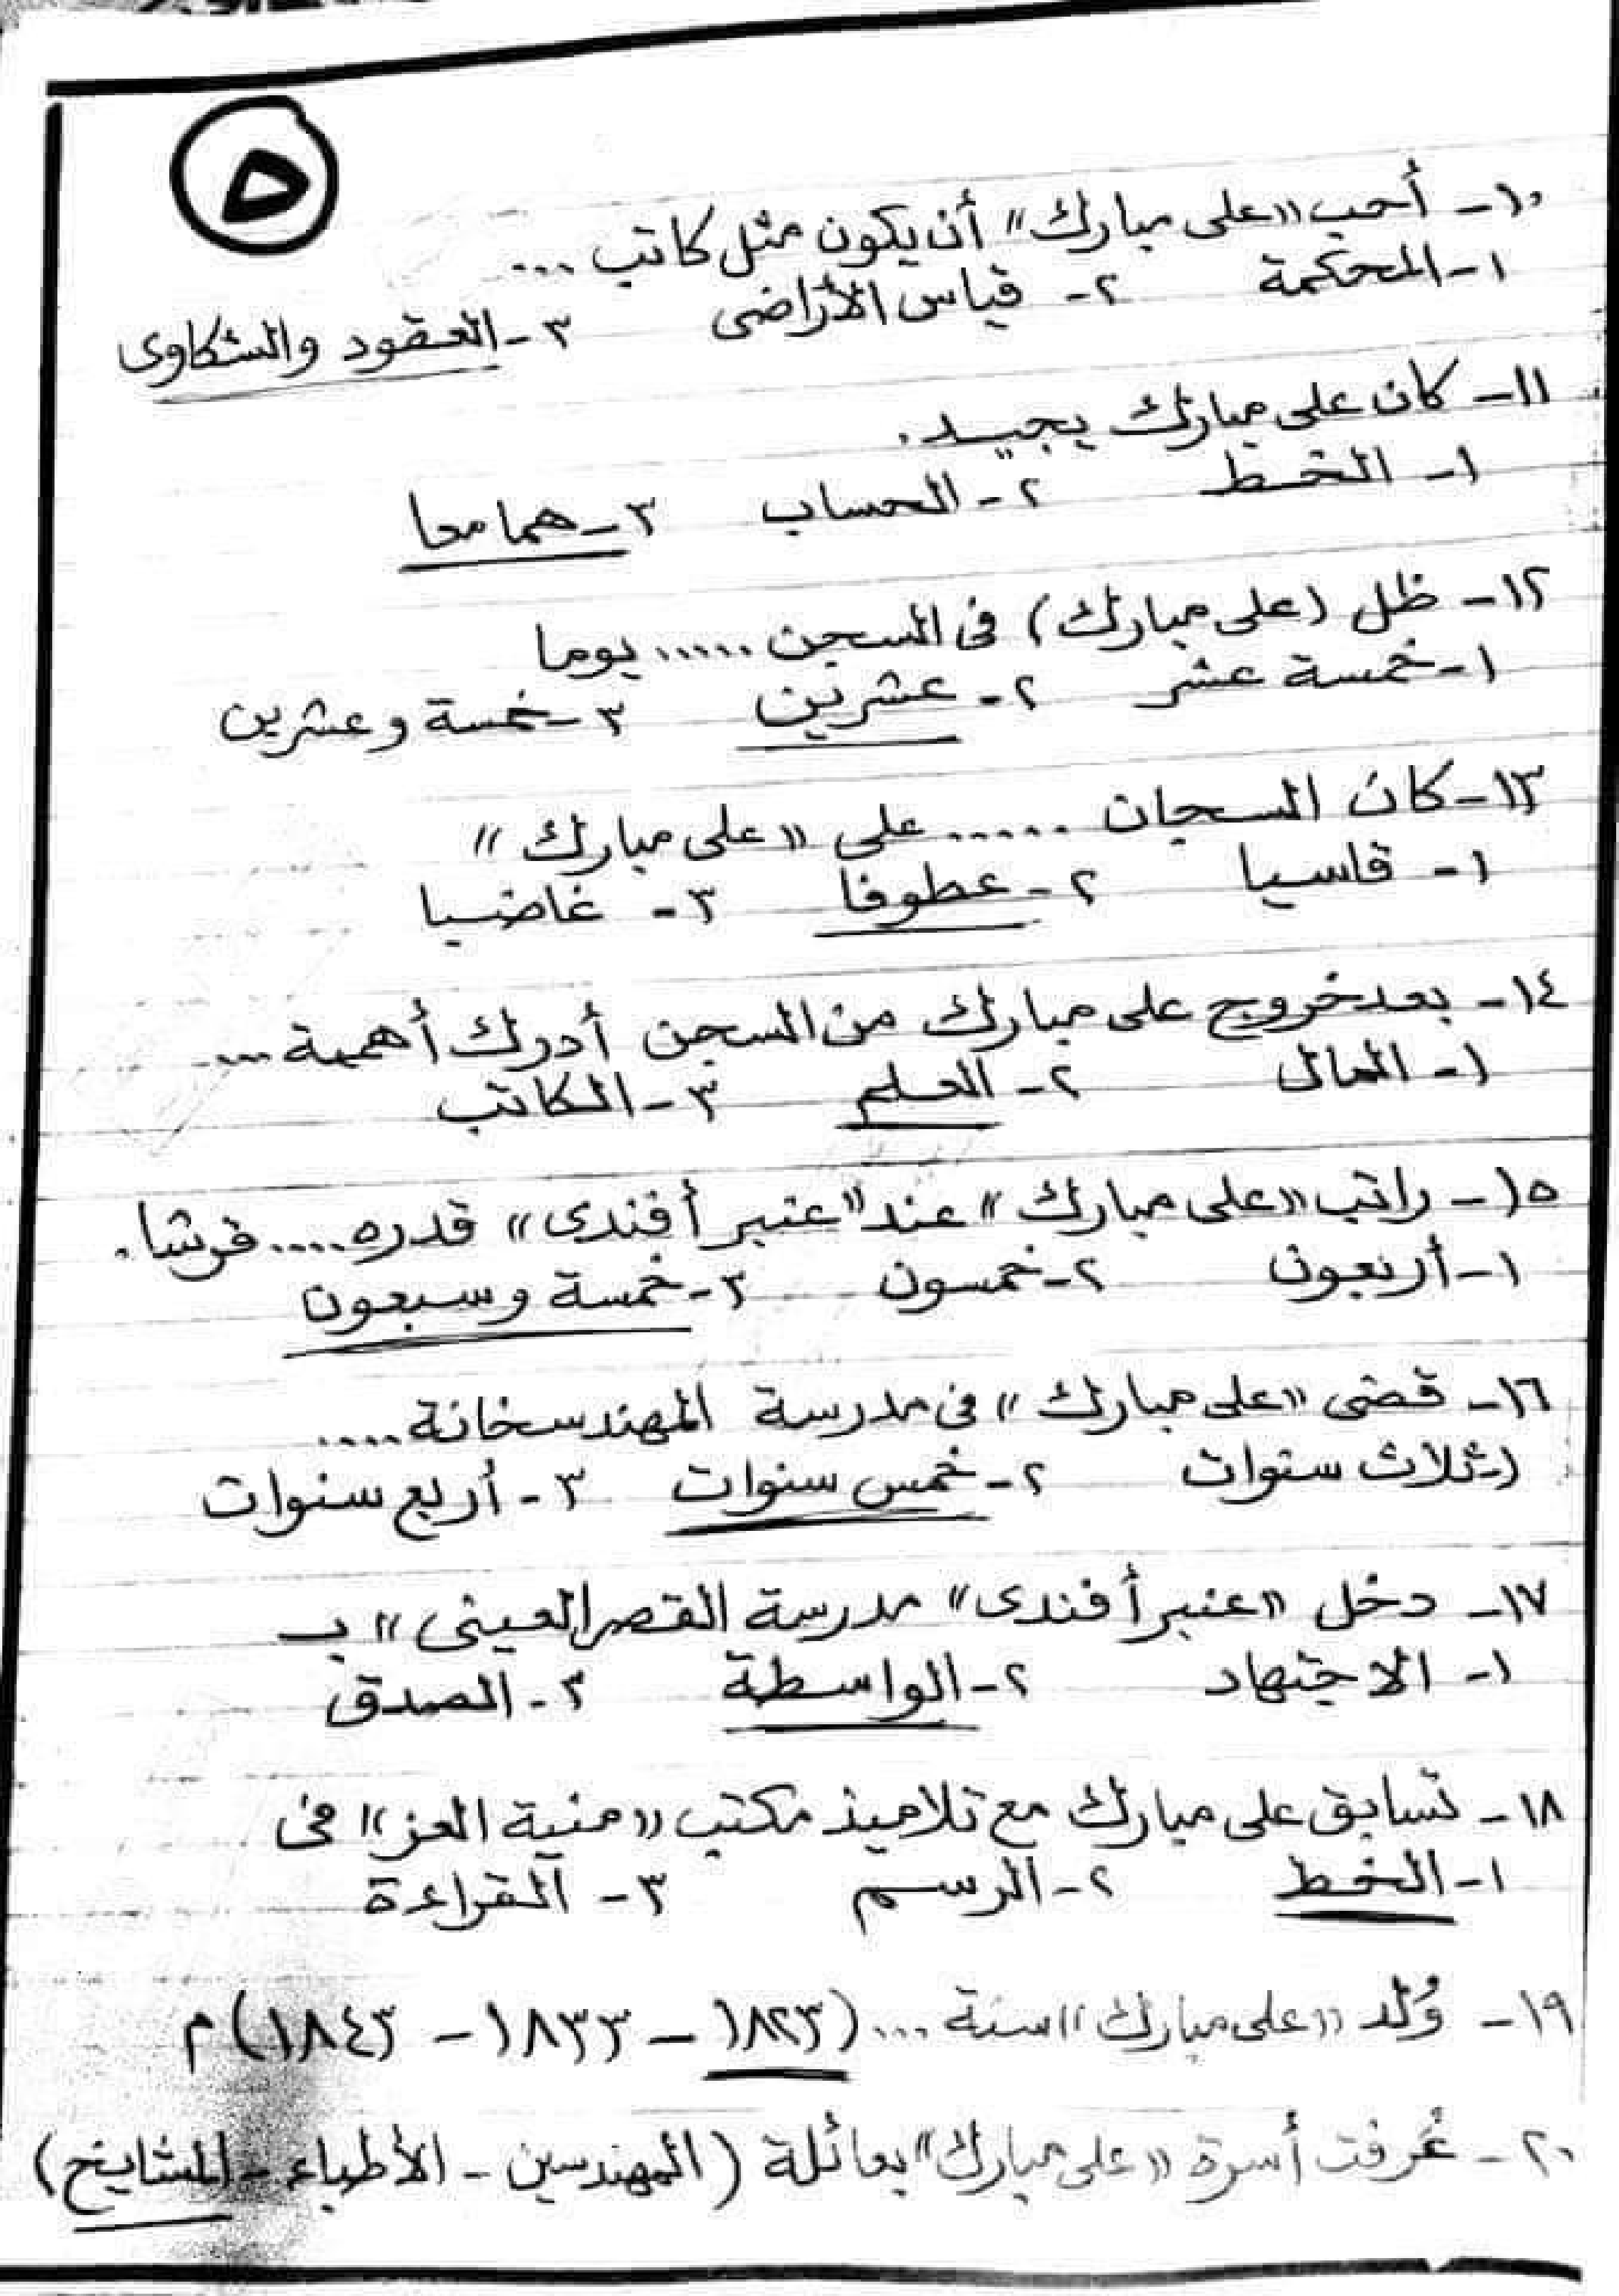 ٥
١٠- أحب «على مبارك» أن يكون مثل كاتب ...
١- المحكمة ٢- قياس الأراضى ٣- العقود والشكاوى
١١- كان على مبارك يجيد.
١- الخط ٢- الحساب ٣- هما معا
١٢- ظل (على مبارك) فى السجن ..... يوما
١- خمسة عشر ٢- عشرين ٣- خمسة وعشرين
١٣- كان السجان ..... على «على مبارك»
١- قاسيا ٢- عطوفا ٣- غاضبا
١٤- بعد خروج على مبارك من السجن أدرك أهمية ....
١- المال ٢- العلم ٣- الكاتب
١٥- راتب «على مبارك» عند "عنبر أفندى» قدره .... قرشا.
١- أربعون ٢- خمسون ٣- خمسة وسبعون
١٦- قضى «على مبارك» فى مدرسة المهندسخانة .....
١- ثلاث سنوات ٢- خمس سنوات ٣- أربع سنوات
١٧- دخل «عنبر أفندى» مدرسة القصر العينى» بـ
١- الاجتهاد ٢- الواسطة ٣- الصدق
١٨- تسابق على مبارك مع تلاميذ مكتب «منية العز» فى
١- الخط ٢- الرسم ٣- القراءة
١٩- وُلد «على مبارك» سنة ... (١٨٢٣ - ١٨٣٣ - ١٨٤٣) م
٢٠- عُرفت أسرة «على مبارك» بعائلة (المهندسين - الأطباء - المشايخ)